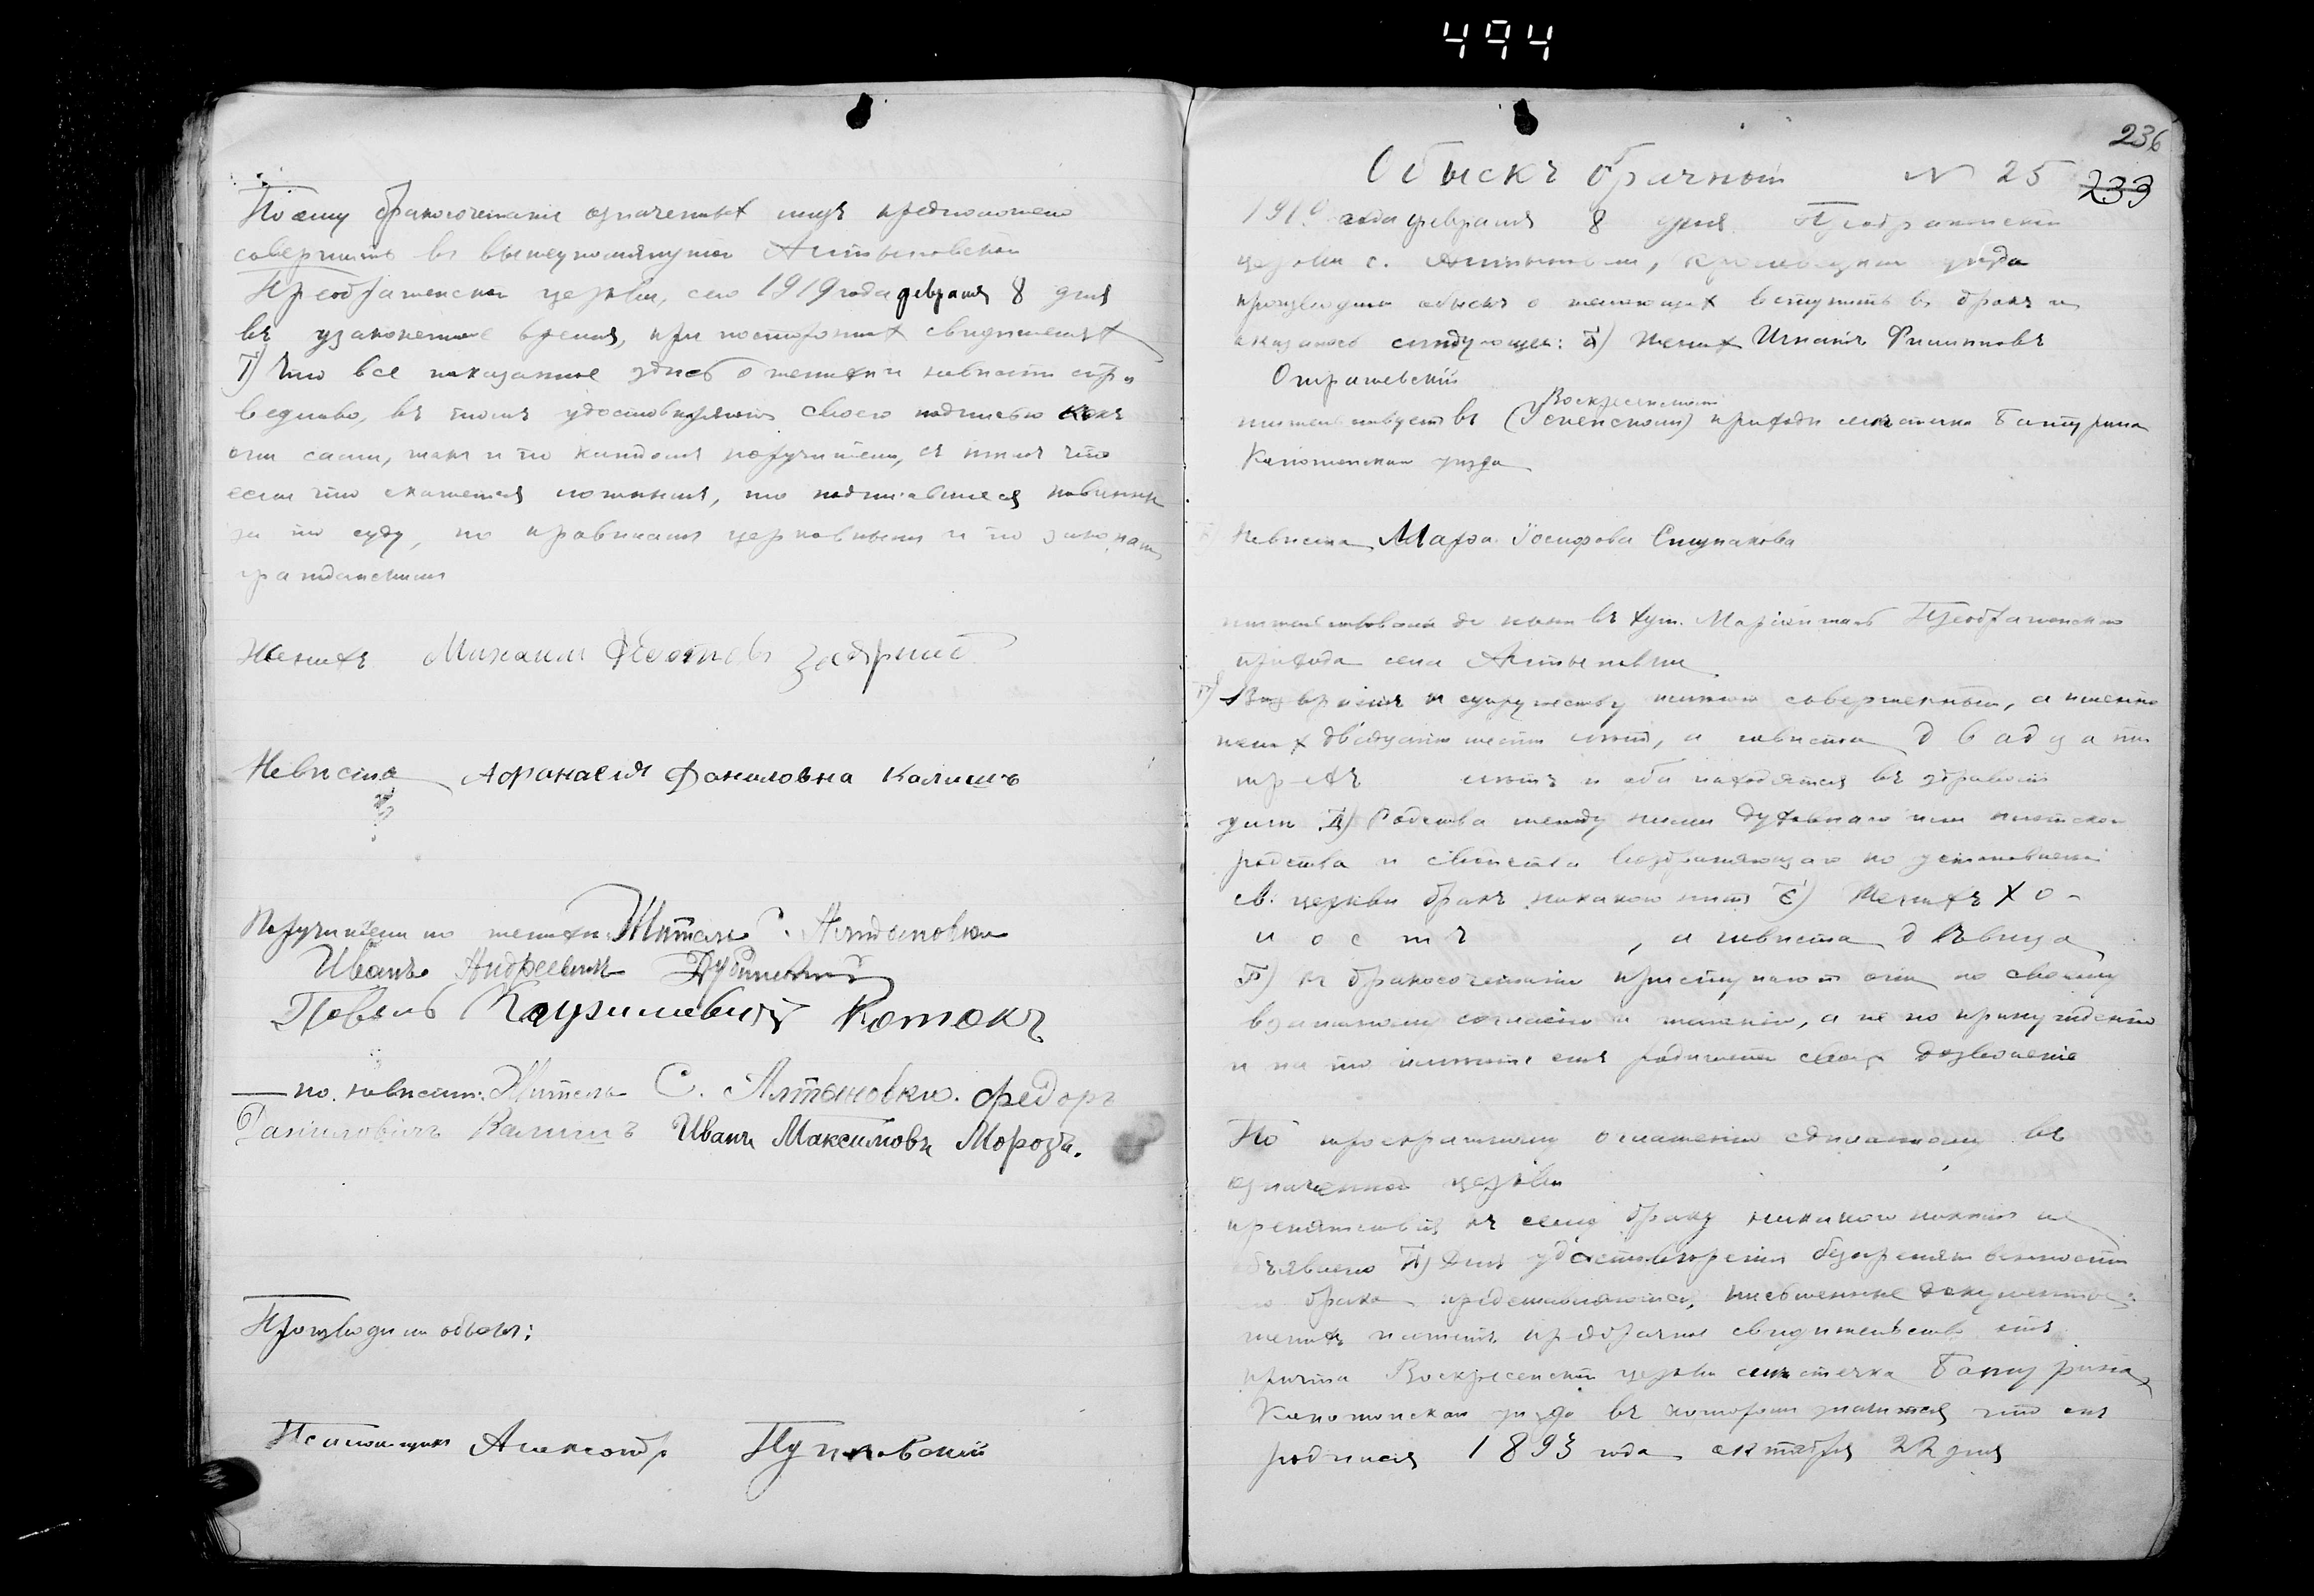 494
По сему бракосочетание означенныхъ лицъ предположено
совершить въ вышеупомянутой Алтыновской
Преображенской церкви, сего 1919 года февраля 8 дня
въ узаконенное время, при постороннихъ свидѣтеляхъ
I) Что все показанное здѣсь о женихѣ и невѣстѣ спра
ведливо, въ томъ удостовѣряютъ своею подписью какъ
они сами, такъ и по каждомъ поручители, съ тѣмъ что
если что окажется ложнымъ, то подписавшіеся повинны
за то суду, по правиламъ церковнымъ и по законамъ
гражданскимъ
Женихъ Михаилъ
Невѣста Афанасія Даниловна Калишъ
Поручители по женихѣ: Житель С. Алтыновки
Иванъ Андреевичъ
Павелъ Котокъ
по невѣстѣ: Житель С. Алтыновки. Федоръ
Даниловичъ Калишъ Иванъ Максимовъ Морозъ.
Производили обыскъ:
Псаломщикъ Александръ
236
Обыскъ брачный N 25 233
1919 года февраля 8 дня Преображенской
церкви с. Алтыновки, Кролевецкаго уѣзда
производили обыскъ о желающихъ вступить въ бракъ и
оказалось слѣдующее: а) Женихъ Игнатъ Филипповъ
Острашевскій
Воскресенскомъ
жительствуетъ въ (Успенскомъ) приходѣ мѣстечка Батурина
Конотопскаго уѣзда
Невѣста Марфа Іосифова Ступакова
жительствовала до нынѣ въ хут. Преображенскаго
прихода села Алтыновки
Возрастъ къ супружеству имѣютъ совершенный, а именно
женихъ двадцати шести лѣтъ, а невѣста двадцати
трехъ лѣтъ и оба находятся въ здравомъ
умѣ. Д) Родства между ними духовнаго или плотскаго
родства и свойства возбраняющаго по установленію
св. церкви бракъ никакого нѣтъ Е) Женихъ хо-
лостъ, а невѣста дѣвица
къ бракосочетанію приступаютъ они по своему
взаимному согласію и желанію, а не по принужденію
и на то имѣютъ отъ родителей своихъ дозволеніе
По троекратному оглашенію сдѣланному въ
означенной церкви
препятствія къ сему браку никакого никѣмъ не
объявлено И) Для удостовѣренія безпрепятственности
его брака представляются письменные документы:
женихъ имѣетъ предбрачное свидѣтельство отъ
причта Воскресенской церкви мѣстечка Батурина
Конотопскаго уѣзда въ которомъ значится что онъ
родился 1893 года октября 22 дня